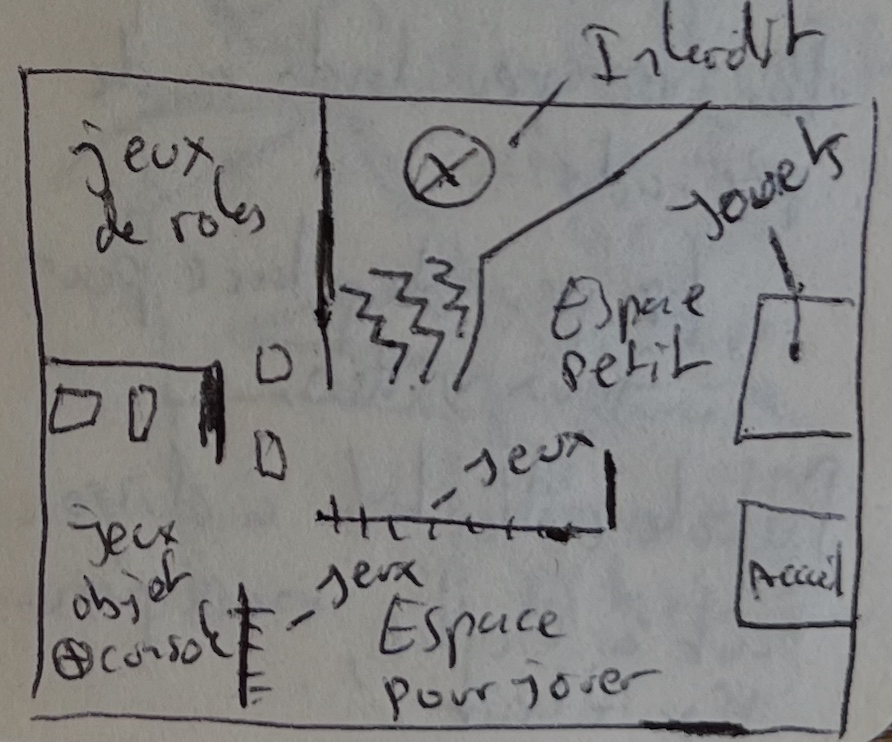 Interdit
jeux
de roles
jouets
Espace
petit
jeux
jeux
objet
⊕ consol
jeux
Accueil
Espace
pour jouer